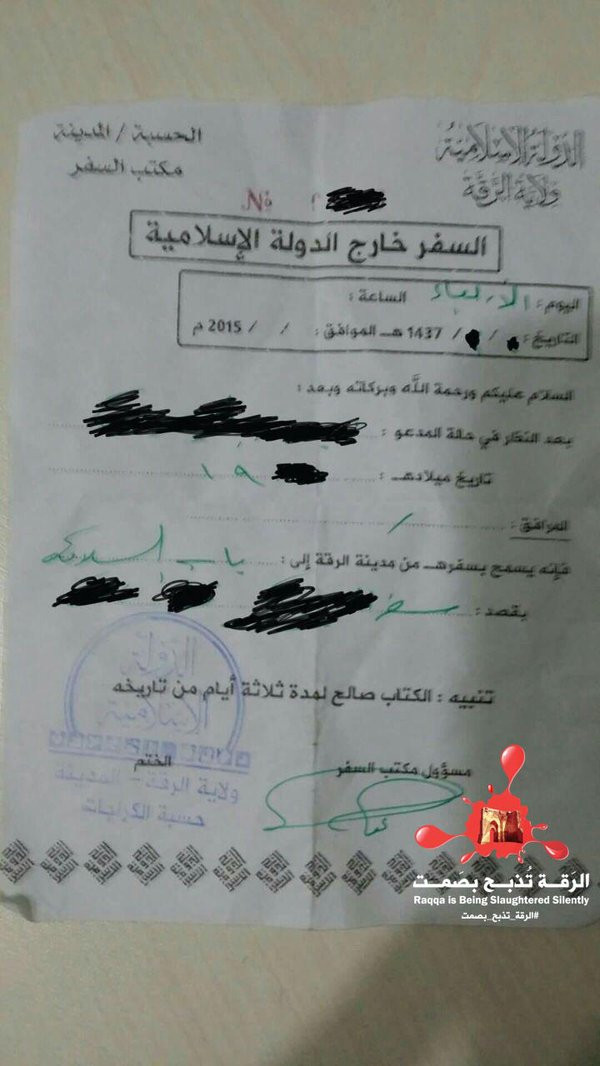 الدولة الإسلامية
ولاية الرقة
الحسبة / المدينة
مكتب السفر
№
السفر خارج الدولة الإسلامية
اليوم : الأربعاء الساعة :
التاريخ : / / 1437 هـ الموافق : / / 2015 م
السلام عليكم ورحمة الله وبركاته وبعد :
بعد النظر في حالة المدعو :
تاريخ ميلاده : ١٩
الموافق : /
فإنه يسمح بسفره من مدينة الرقة إلى : باب السلامة
بقصد : سفر
تنبيه : الكتاب صالح لمدة ثلاثة أيام من تاريخه
مسؤول مكتب السفر
الختم
الدولة
الإسلامية
ولاية الرقة - المدينة
حسبة
الرقة تُذبح بصمت
Raqqa is Being Slaughtered Silently
#الرقة_تذبح_بصمت